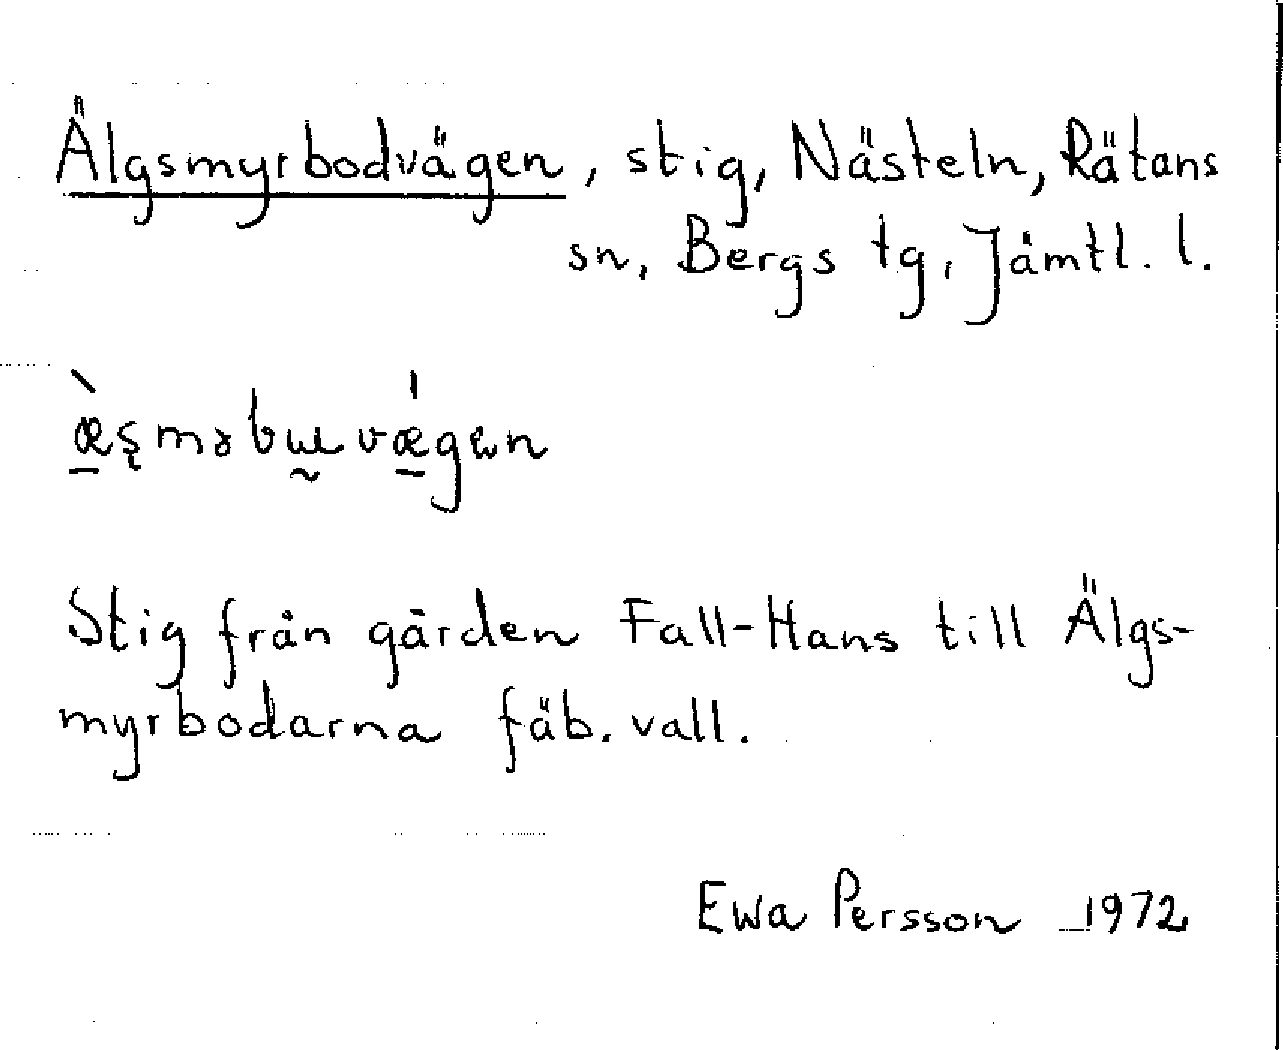 Älgsmyrbodvägen, stig, Nästeln, Rätans
sn, Bergs tg, Jämtl. l.
Stig från gården Fall-Hans till Älgs-
myrbodarna fäb. vall.
Ewa Persson 1972